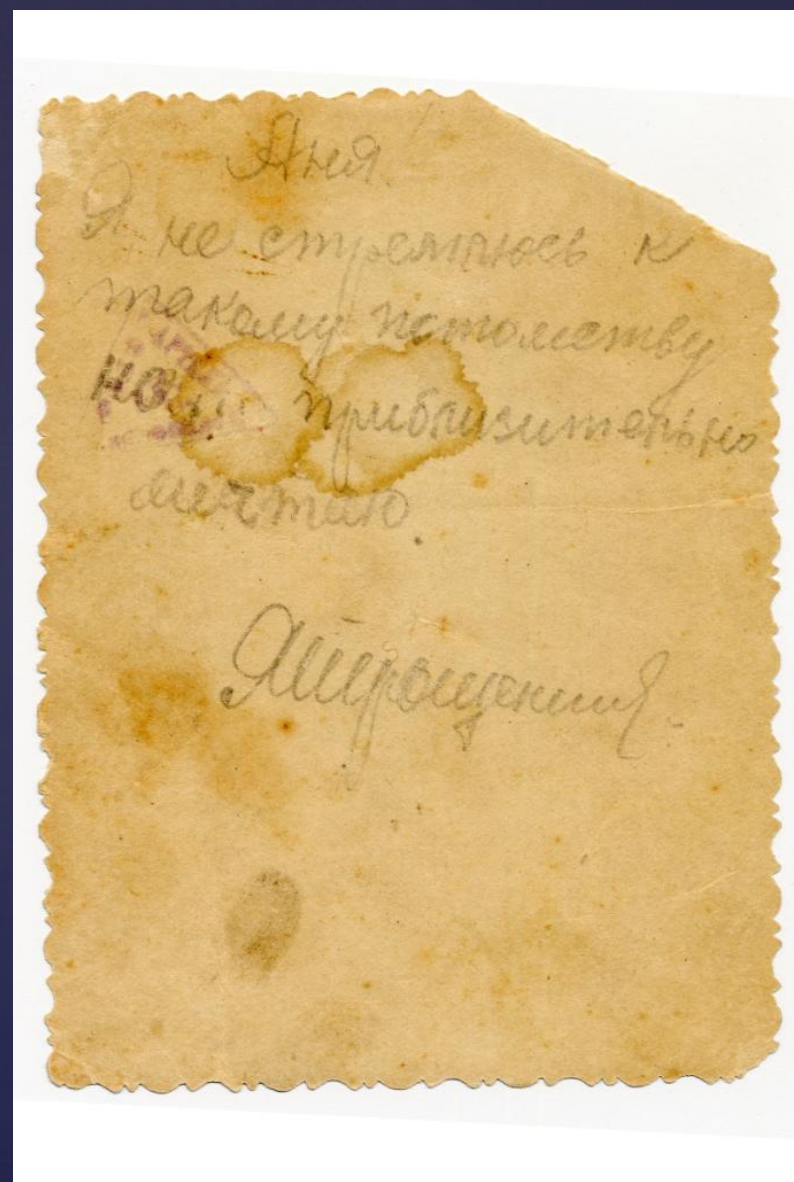 Аня!
Я не стремлюсь к
такому потомству
но приблизительно
мечтаю.